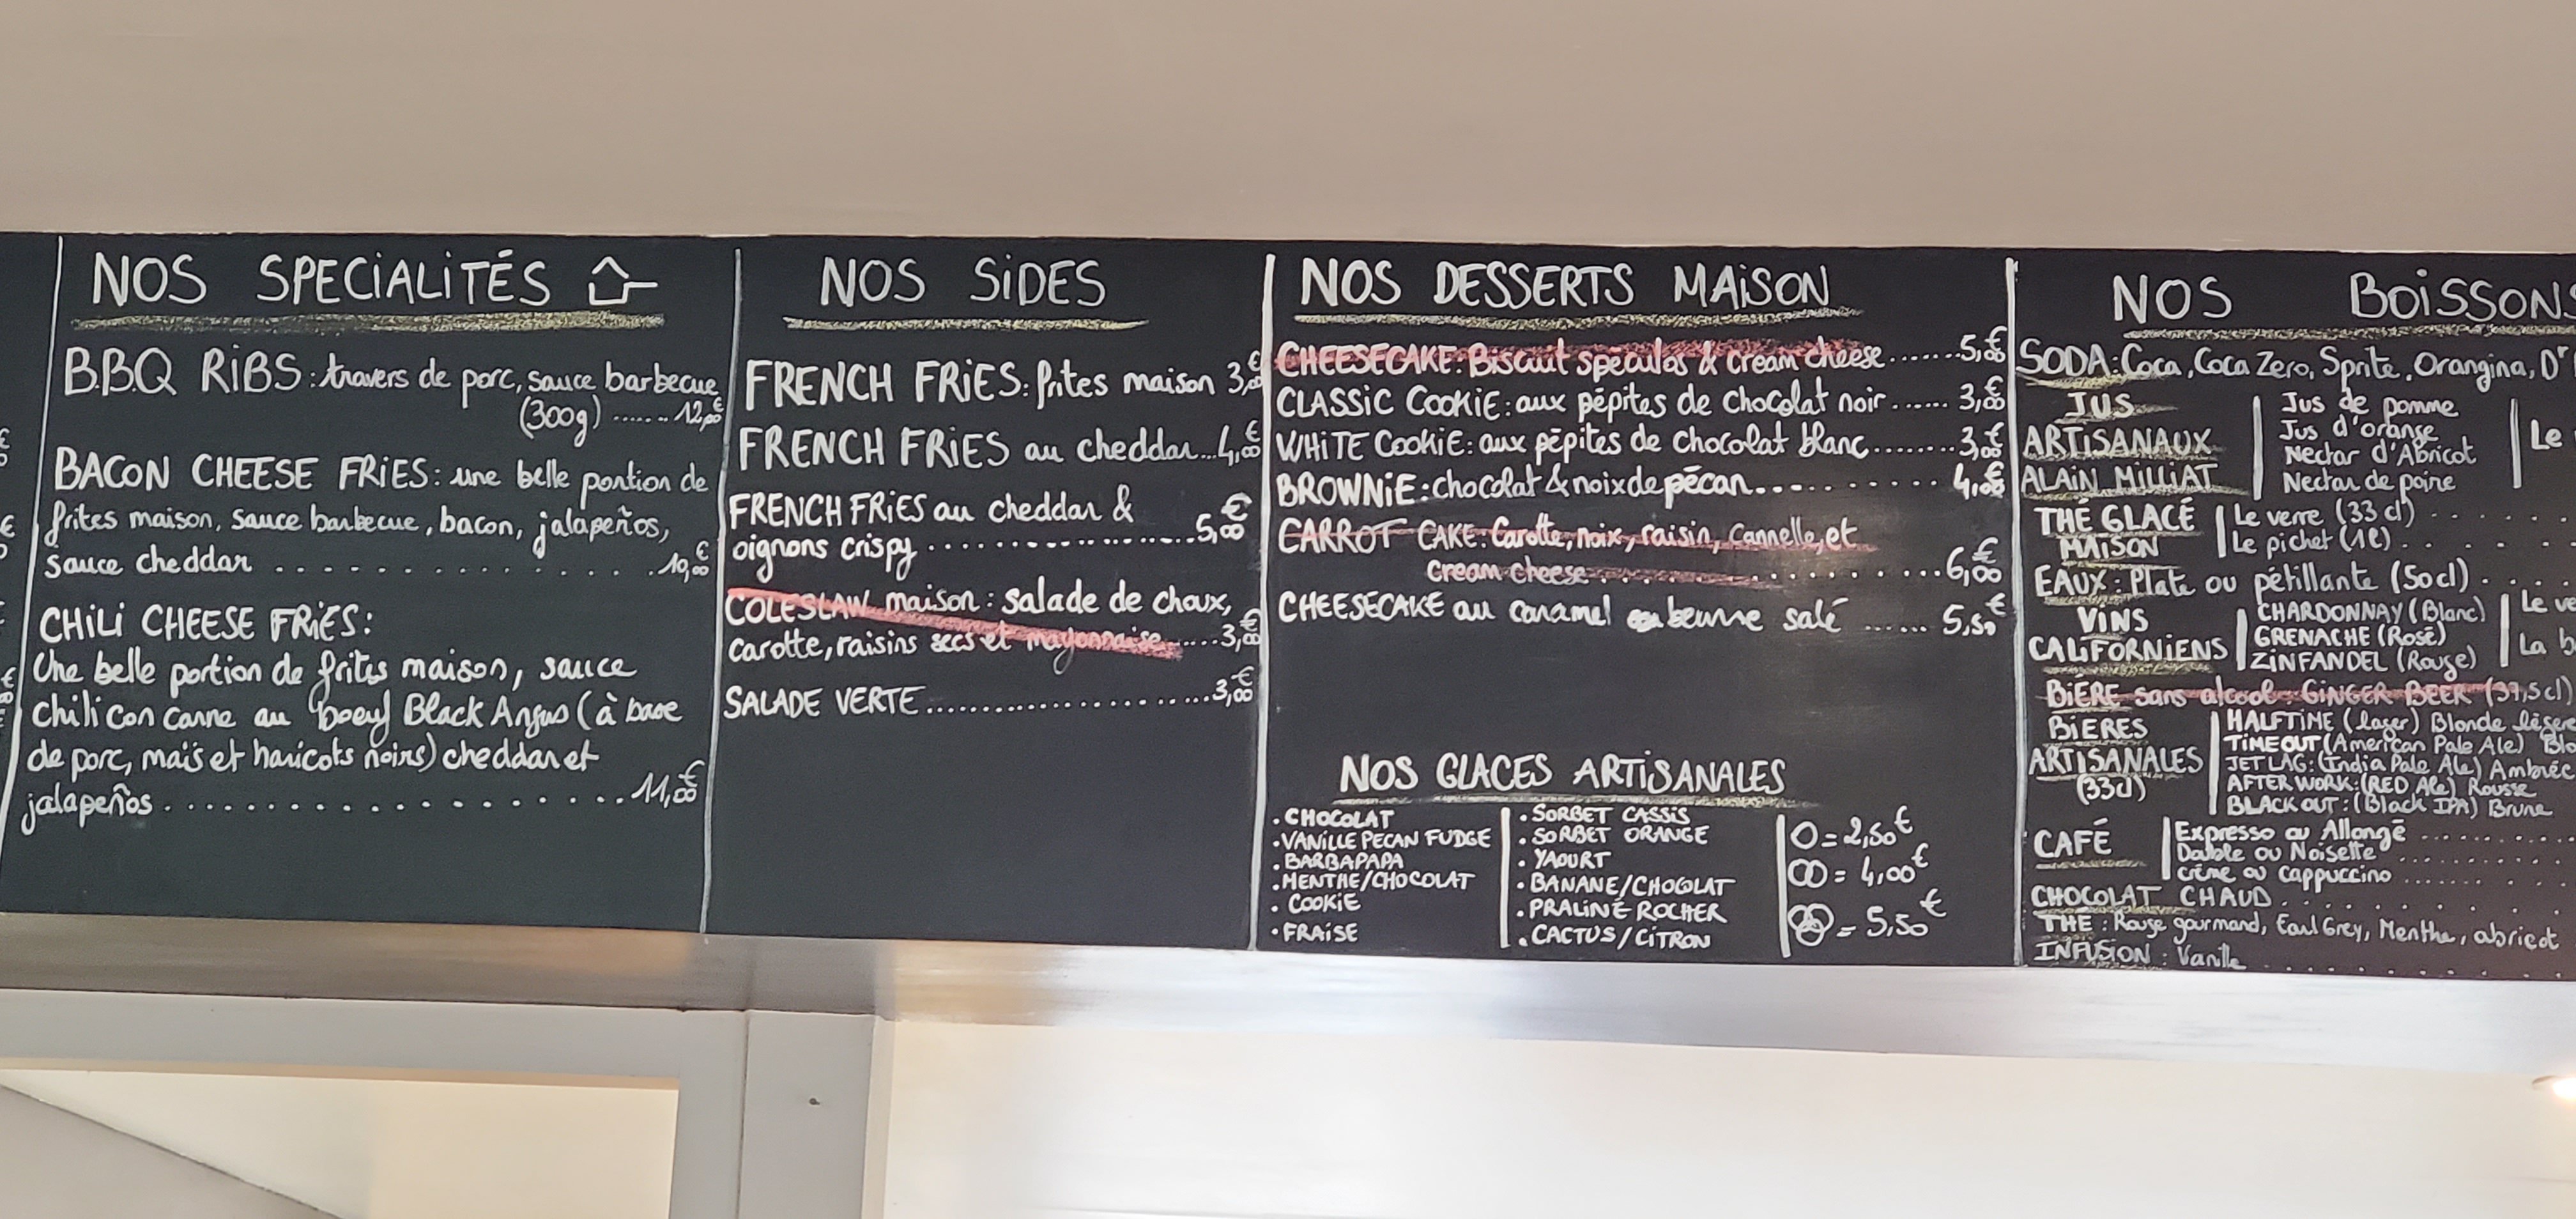 NOS SPECIALITÉS
B.B.Q RIBS : travers de porc, sauce barbecue
(300g) ....... 12,00€
BACON CHEESE FRIES : une belle portion de
frites maison, sauce barbecue, bacon, jalapeños,
sauce cheddar . . . . . . . . . . . . . . . 10,00€
CHILI CHEESE FRIES :
Une belle portion de frites maison, sauce
chili con carne au boeuf Black Angus (à base
de porc, maïs et haricots noirs) cheddar et
jalapeños . . . . . . . . . . . . . . . . . . 11,00€
NOS SIDES
FRENCH FRIES : frites maison 3,00€
FRENCH FRIES au cheddar...4,00€
FRENCH FRIES au cheddar &
oignons crispy ..................5,00€
COLESLAW maison : salade de choux,
carotte, raisins secs et mayonnaise.....3,00€
SALADE VERTE........................3,00€
NOS DESSERTS MAISON
CHEESECAKE : Biscuit speculos & cream cheese.......5,00€
CLASSIC COOKIE : aux pépites de chocolat noir...... 3,00€
WHITE COOKIE : aux pépites de chocolat blanc........3,00€
BROWNIE : chocolat & noix de pécan............ 4,00€
CARROT CAKE : Carotte, noix, raisin, cannelle, et
cream cheese......................6,00€
CHEESECAKE au caramel beurre salé ...... 5,50€
NOS GLACES ARTISANALES
. CHOCOLAT
. VANILLE PECAN FUDGE
. BARBAPAPA
. MENTHE/CHOCOLAT
. COOKIE
. FRAISE
. SORBET CASSIS
. SORBET ORANGE
. YAOURT
. BANANE/CHOCOLAT
. PRALINÉ ROCHER
. CACTUS/CITRON
= 2,50€
= 4,00€
= 5,50€
NOS BOISSONS
SODA : Coca, Coca Zero, Sprite, Orangina, Dr
JUS
ARTISANAUX
ALAIN MILLIAT
Jus de pomme
Jus d'orange
Nectar d'Abricot
Nectar de poire
Le
THÉ GLACÉ
MAISON
Le verre (33 cl) . . . .
Le pichet (1l) . . . .
EAUX : Plate ou pétillante (50cl) . . .
VINS
CALIFORNIENS
CHARDONNAY (Blanc)
GRENACHE (Rosé)
ZINFANDEL (Rouge)
Le ve
La b
BIÈRE sans alcool : GINGER BEER (37,5cl)
BIERES
ARTISANALES
(33cl)
HALFTIME (lager) Blonde légere
TIMEOUT (American Pale Ale) Blo
JETLAG : (India Pale Ale) Ambrée
AFTER WORK : (RED Ale) Rousse
BLACK OUT : (Black IPA) Brune
CAFÉ
Expresso ou Allongé ........
Double ou Noisette ........
crème ou cappuccino ......
CHOCOLAT CHAUD . . . . . . .
THÉ : Rouge gourmand, Earl Grey, Menthe, abricot
INFUSION : Vanille . . . . . . . . .